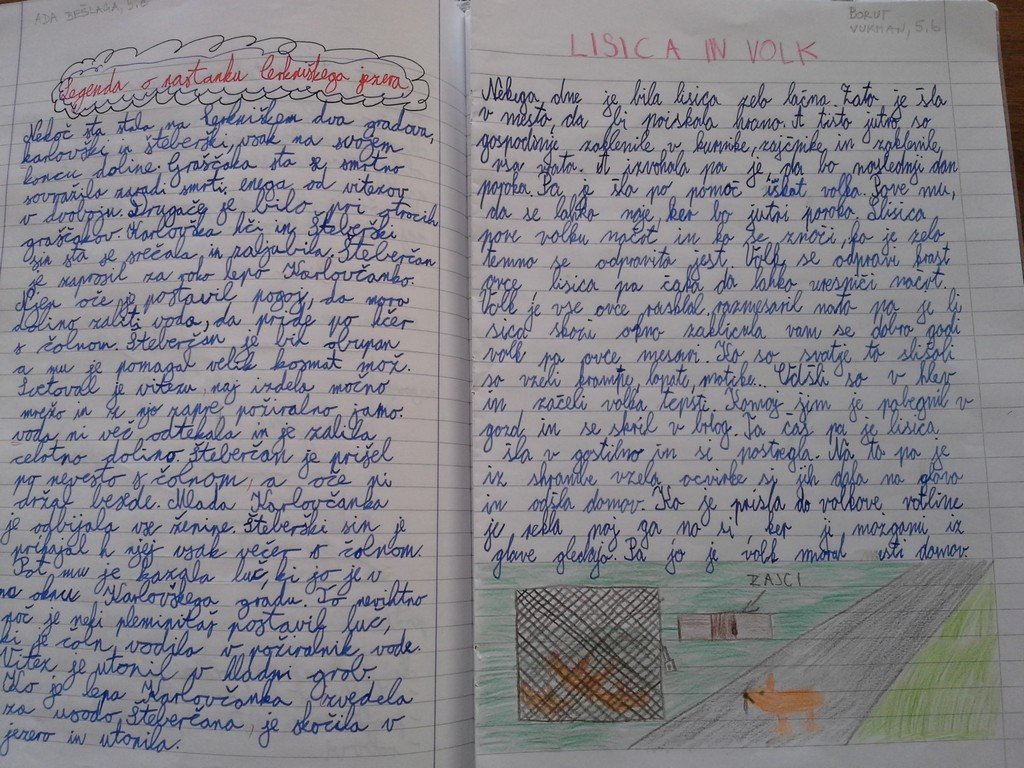 ADA BEŠLAGA, 5.b
Legenda o nastanku Cerkniškega jezera
Nekoč sta stala na Cerkniškem dva gradova,
karlovški in šteberški, vsak na svojem
koncu doline. Graščaka sta se smrtno
sovražila zaradi smrti enega od vitezov
v dvoboju. Drugače je bilo pri otrocih
graščakov. Karlovška hči in Šteberški
sin sta se srečala in zaljubila. Šteberčan
je naprosil za roko lepo Karlovčanko.
Njen oče je postavil pogoj, da mora
dolino zaliti voda, da pride po hčer
s čolnom. Šteberčan je bil obupan
a mu je pomagal velik kosmat mož.
Svetoval je vitezu naj izdela močno
mrežo in z njo zapre požiralno jamo.
voda ni več odtekala in je zalila
celotno dolino. Šteberčan je prišel
po nevesto s čolnom, a oče ni
držal besede. Mlada Karlovčanka
je odbijala vse ženine. Šteberški sin je
prihajal k njej vsak večer s čolnom.
Pot mu je kazala luč ki jo je v
na oknu Karlovškega gradu. To nevihtno
noč je neki plemipitaš postavil luč,
ki je čoln vodila v požiralnik vode.
Vitez je utonil v hladni grob.
Ko je lepa Karlovčanka zvedela
za usodo Šteberčana, je skočila v
jezero in utonila.
BORUT
VUKMAN, 5.b
LISICA IN VOLK
Nekega dne je bila lisica zelo lačna. Zato je šla
v mesto, da bi poiskala hrano. A tisto jutro so
gospodinji zaklenile v kurnike, zajčnike in zaklenile,
vsa vrata. A izvohala pa je, da bo naslednji dan
poroka. Pa je šla po pomoč iskat volka. Pove mu,
da se lahko naje, ker bo jutri poroka. Lisica
pove volku načrt in ko se znoči, ko je zelo
temno se odpravita jest. Volk se odpravi krast
ovce lisica pa čaka da lahko uresniči načrt.
Volk je vse ovce rasklal razmesaril nato pa je li
sica skozi okno zaklicala vam se dobro godi
volk pa ovce mesari. Ko so svatje to slišali
so vzeli krampe, lopate, motike... Odšli so v hlev
in začeli volka tepsti. Komaj jim je pobegnil v
gozd in se skril v brlog. Ta čas pa je lisica
šla v gostilno in si postregla. Na to pa je
iz shrambe vzela ocvirke si jih dala na glavo
in odšla domov. Ko je prišla do volkove votline
je rekla naj ga no si ker ji možgani iz
glave gledajo. Pa jo je volk moral nesti domov
ZAJCI